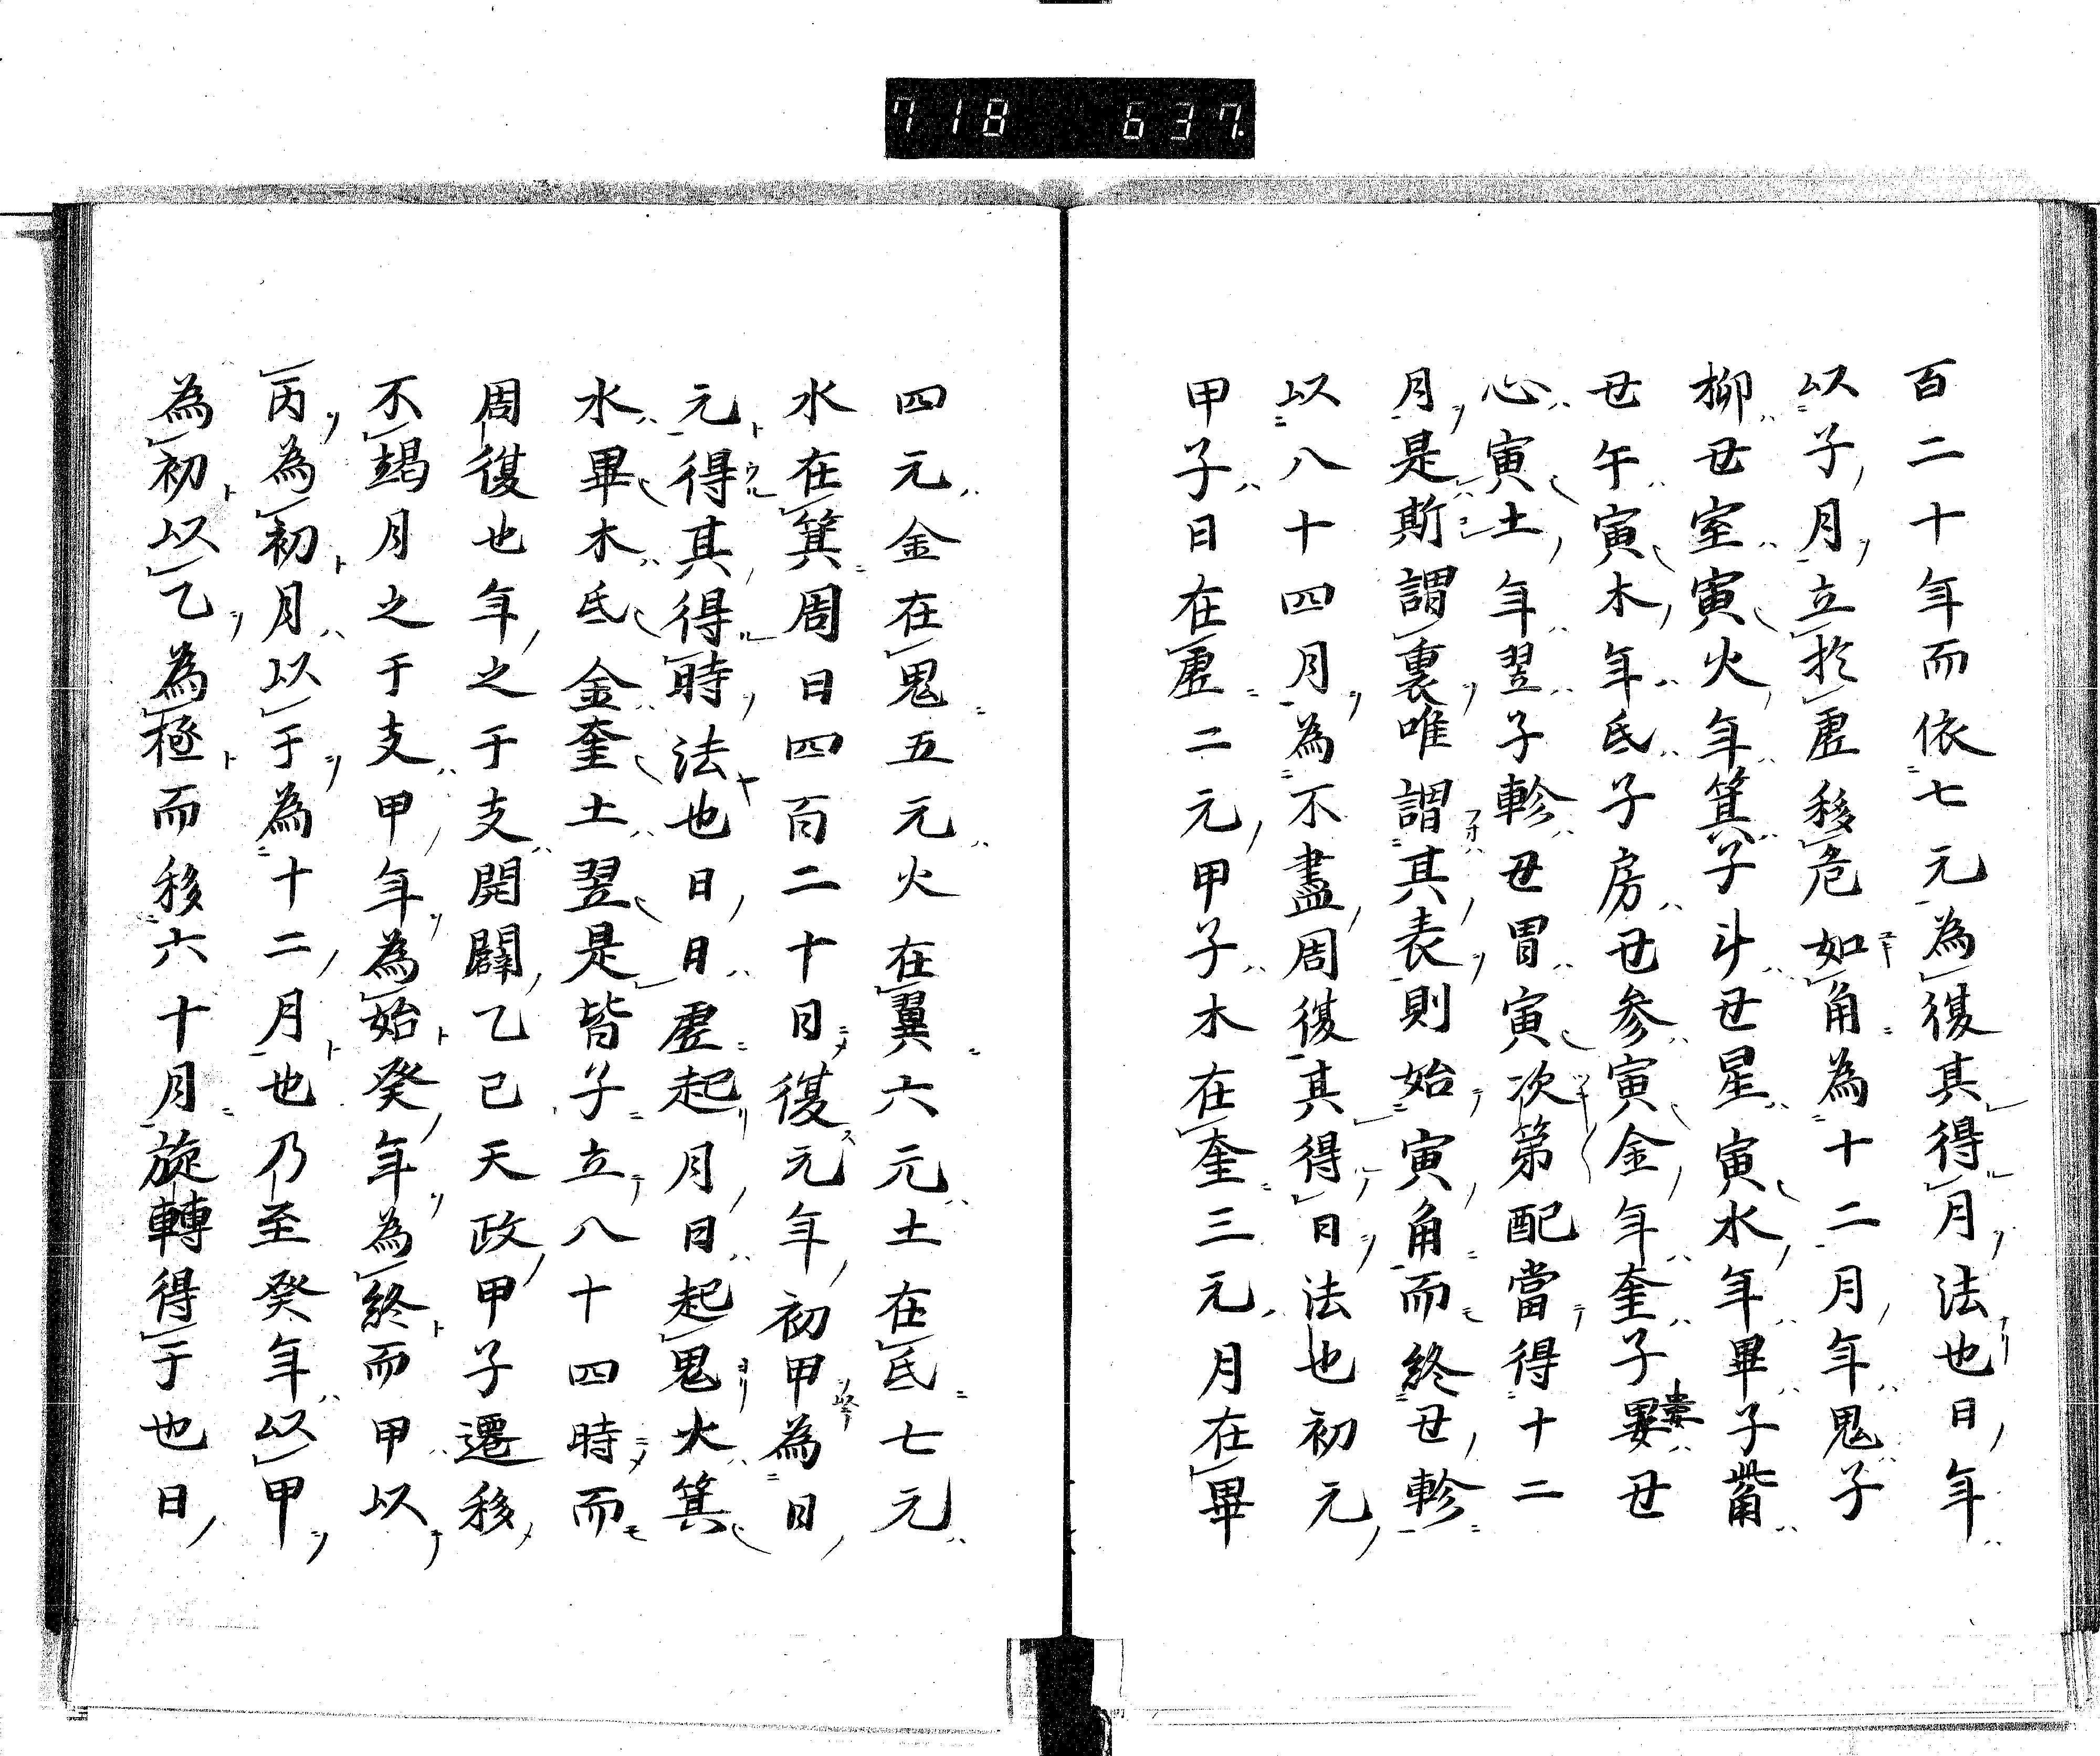 718 637
百二十年而依七元為復其得月法也日年
以子月立於虚移危如角為十二月年鬼子
柳丑室寅火年箕子斗丑星寅水年畢子觜
丑午寅木年氐子房丑参寅金年奎子婁丑
心寅土年翌子軫丑胃寅次第配當得十二
月是斯謂裏唯謂其表則始寅角而終丑軫
以八十四月為不盡周復其得日法也初元
甲子日在虚二元甲子木在奎三元月在畢
四元金在鬼五元火在翼六元土在氐七元
水在箕周日四百二十日復元年初甲為日
元得其得時法也日日虚起月日起鬼火箕
水畢木氐金奎土翌是皆子立八十四時而
周復也年之干支開闢乙已天政甲子遷移
不竭月之干支甲年為始癸年為終而甲以
丙為初月以于為十二月也乃至癸年以甲
為初以乙為極而移六十月旋轉得于也日